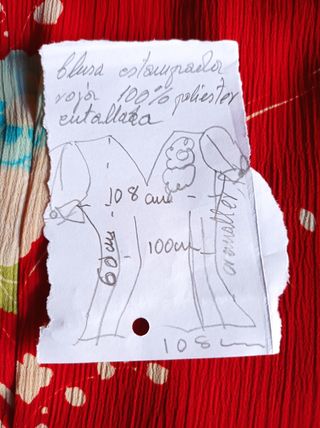 blusa estampada
roja 100% poliester
entallada
108 cm
60 cm
100cm
108 cm